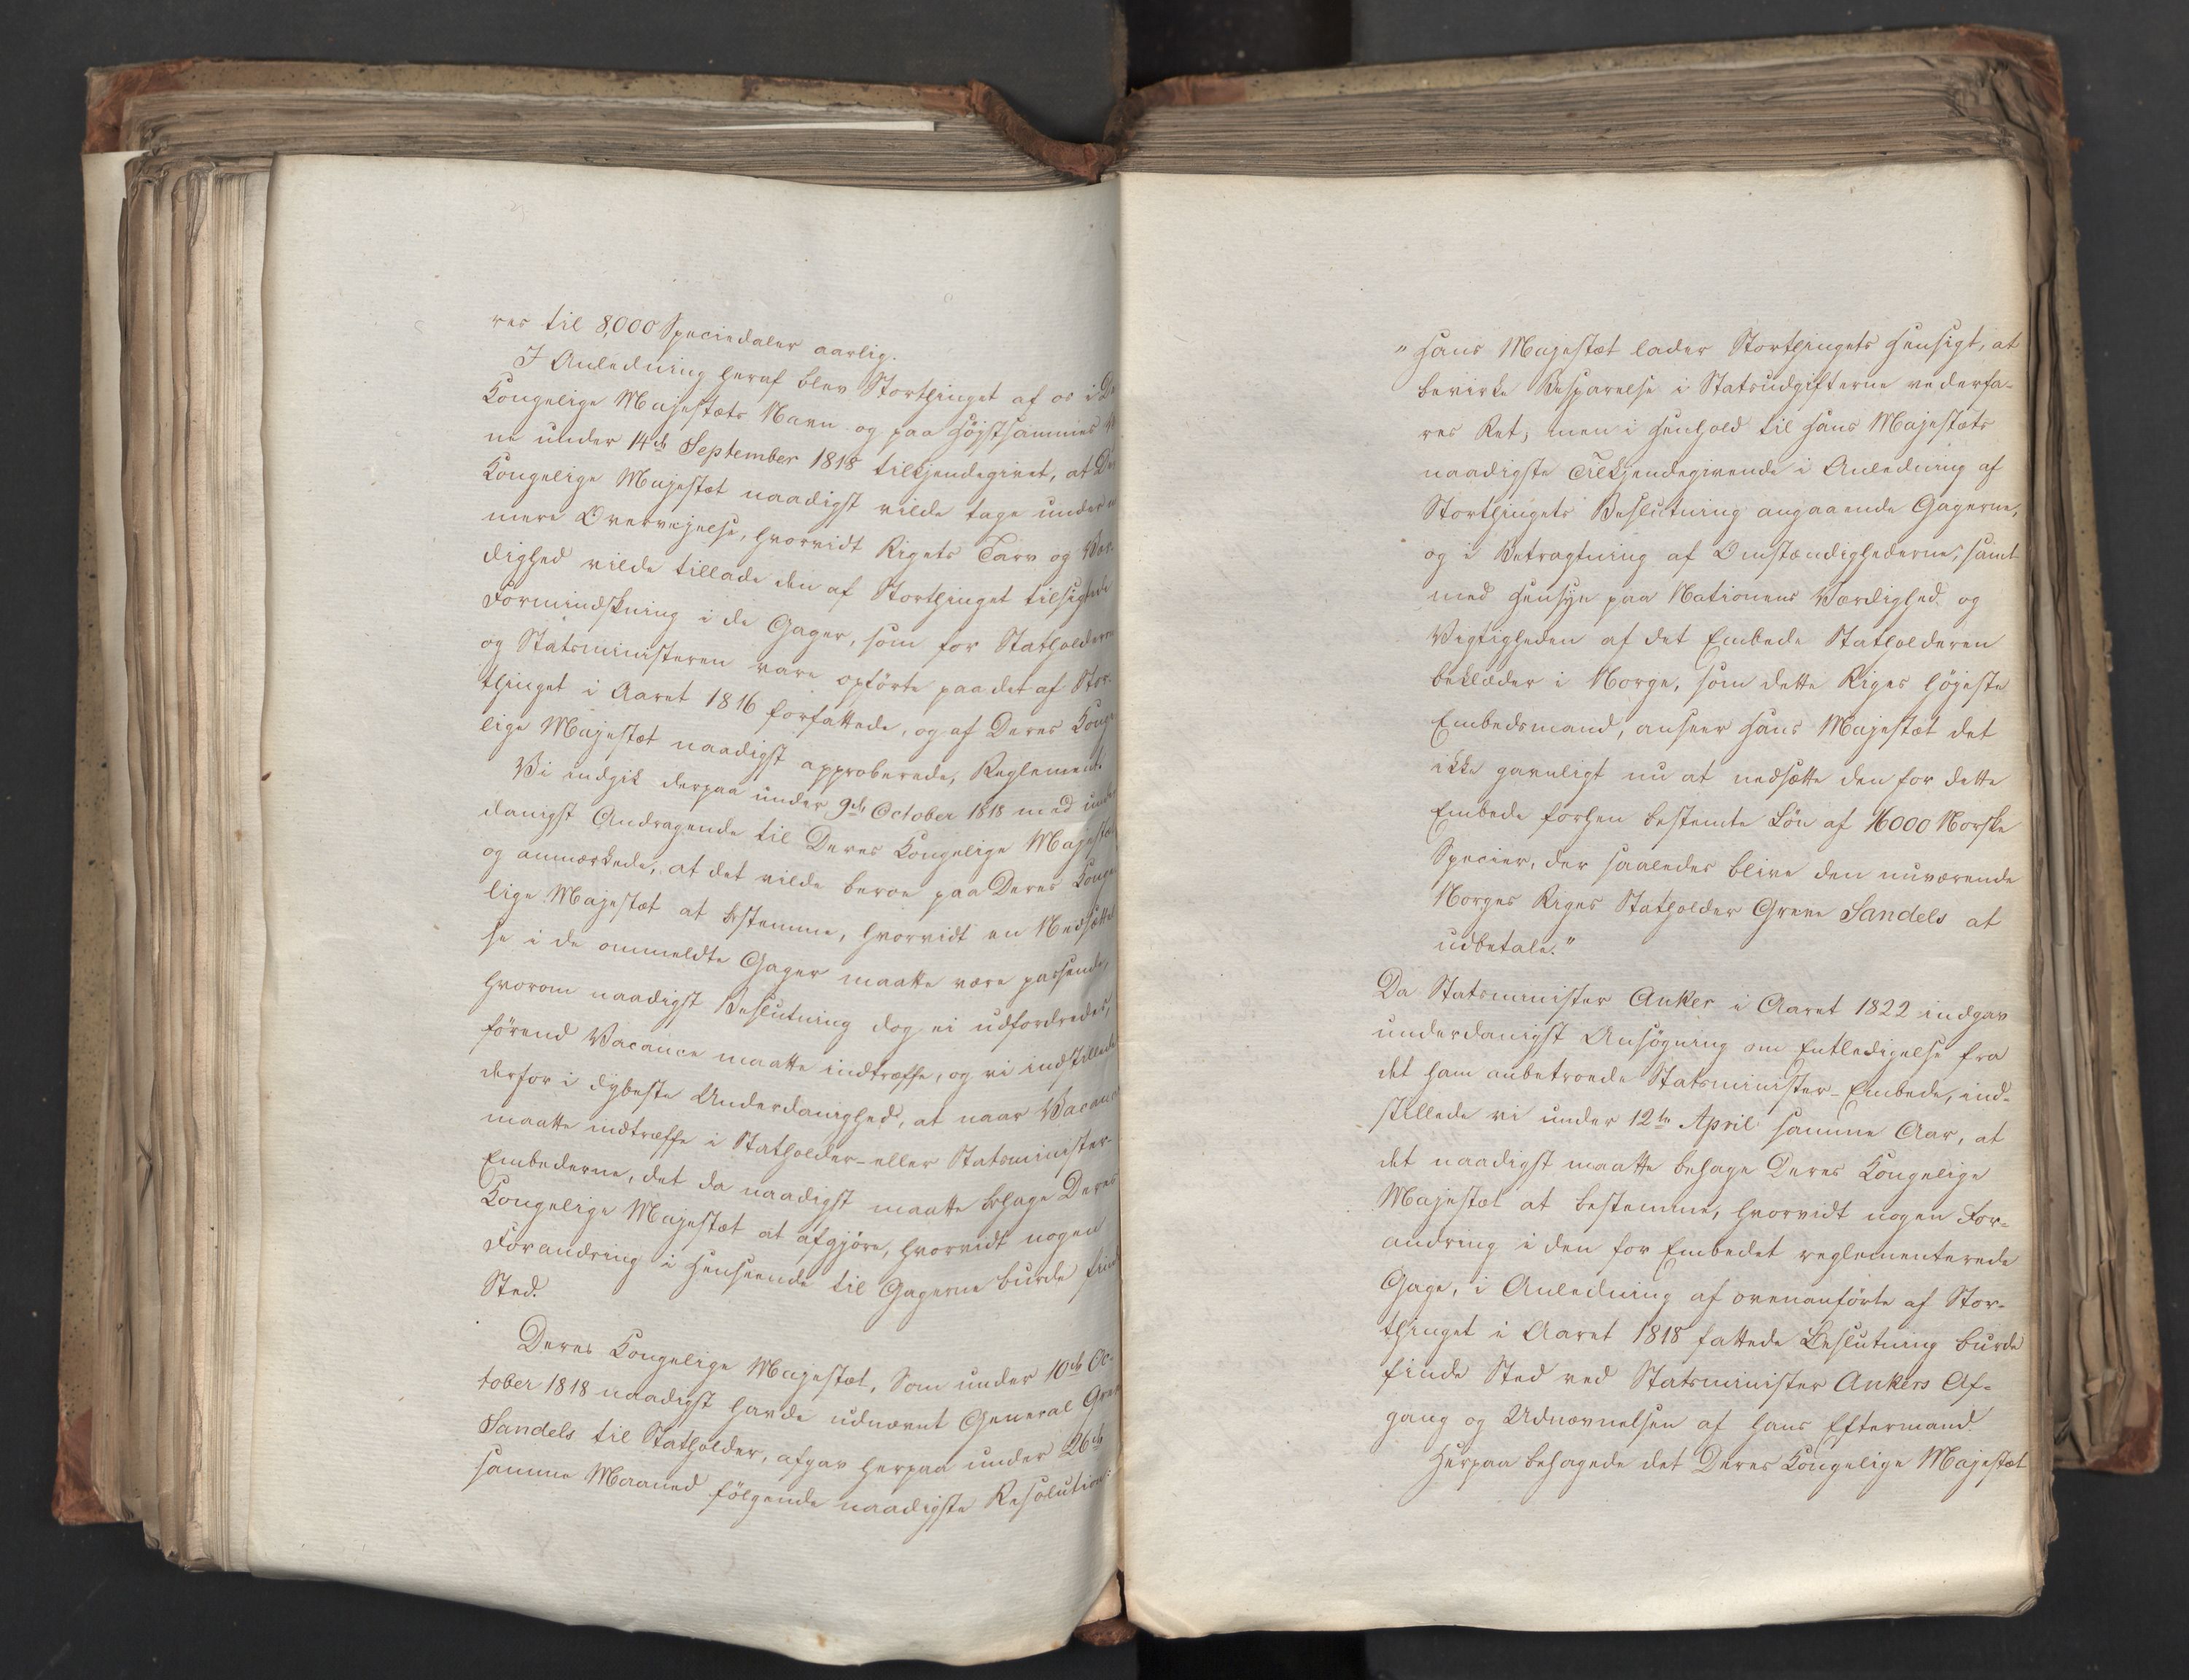 res til 8,000 Speciedaler aarlig.
I Anledning heraf blev Storthinget af os i De
Kongelige Majestæts Navn og paa Højstsammes
ne under 14de September 1818 tilkjendegivet, at De
Kongelige Majestæt naadigst vilde tage under
mere Overvejelse, hvorvidt Rigets Tarv og Vær-
dighed vilde tillade den af Storthinget tilsigtede
Formindskning i de Gager, som for Statholderen
og Statsministeren vare opförte paa det af Stor-
thinget i Aaret 1816 forfattede, og af Deres Konge
lige Majestæt naadigst approberede, Reglement.
Vi indgik derpaa under 9de October 1818 med under
danigst Andragende til Deres Kongelige Majestæt
og anmærkede, at det vilde beroe paa Deres Konge
lige Majestæt at bestemme, hvorvidt en Nedsættel
se i de ommeldte Gager maatte være passende,
hvorom naadigst Beslutning dog ei udfordredes,
förend Vacance maatte indtræffe, og vi indstillede
derfor i dybeste Underdanighed, at naar Vacance
maatte indtræffe i Statholder- eller Statsminister-
Embederne, det da naadigst maatte behage Deres
Kongelige Majestæt at afgjöre, hvorvidt nogen
Forandring i Henseende til Gagerne burde finde
Sted.
Deres Kongelige Majestæt, Som under 10de Oc-
tober 1818 naadigst havde udnævnt General Greve
Sandels til Statholder, afgav herpaa under 26de
samme Maaned fölgende naadigste Resolution:
"Hans Majestæt lader Storthingets Hensigt, at
bevirke Besparelse i Statsudgifterne vederfa-
res Ret; men i Henhold til Hans Majestæts
naadigste Tilkjendegivende i Anledning af
Storthingets Beslutning angaaende Gagerne,
og i Betragtning af Omstændighederne, samt
med Hensyn paa Nationens Værdighed og
Vigtigheden af det Embede Statholderen
beklæder i Norge, som dette Riges höjeste
Embedsmand, anseer Hans Majestæt det
ikke gavnligt nu at nedsætte den for dette
Embede forhen bestemte Lön af 16000 Norske
Specier, der saaledes blive den nuværende
Norges Riges Statholder Greve Sandels at
udbetale."
Da Statsminister Anker i Aaret 1822 indgav
underdanigst Ansögning om Entledigelse fra
det ham anbetroede Statsminister-Embede, ind-
stillede vi under 12te April samme Aar, at
det naadigst maatte behage Deres Kongelige
Majestæt at bestemme, hvorvidt nogen For-
andring i den for Embedet reglementerede
Gage, i Anledning af ovenanförte af Stor-
thinget i Aaret 1818 fattede Beslutning burde
finde Sted ved Statsminister Ankers Af-
gang og Udnævnelsen af hans Eftermand.
Herpaa behagede det Deres Kongelige Majestæt